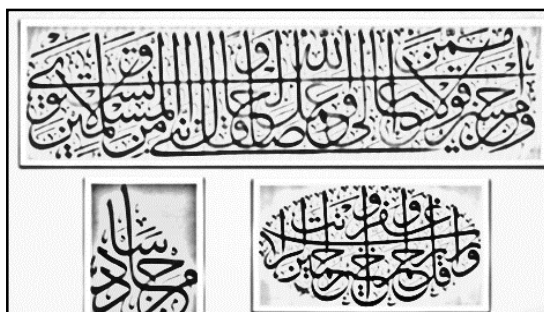 ومن أحسن قولا ممن دعا إلى الله وعمل صالحا وقال إنني من المسلمين ولا تستوي
وقل رب اغفر وارحم وأنت خير الراحمين